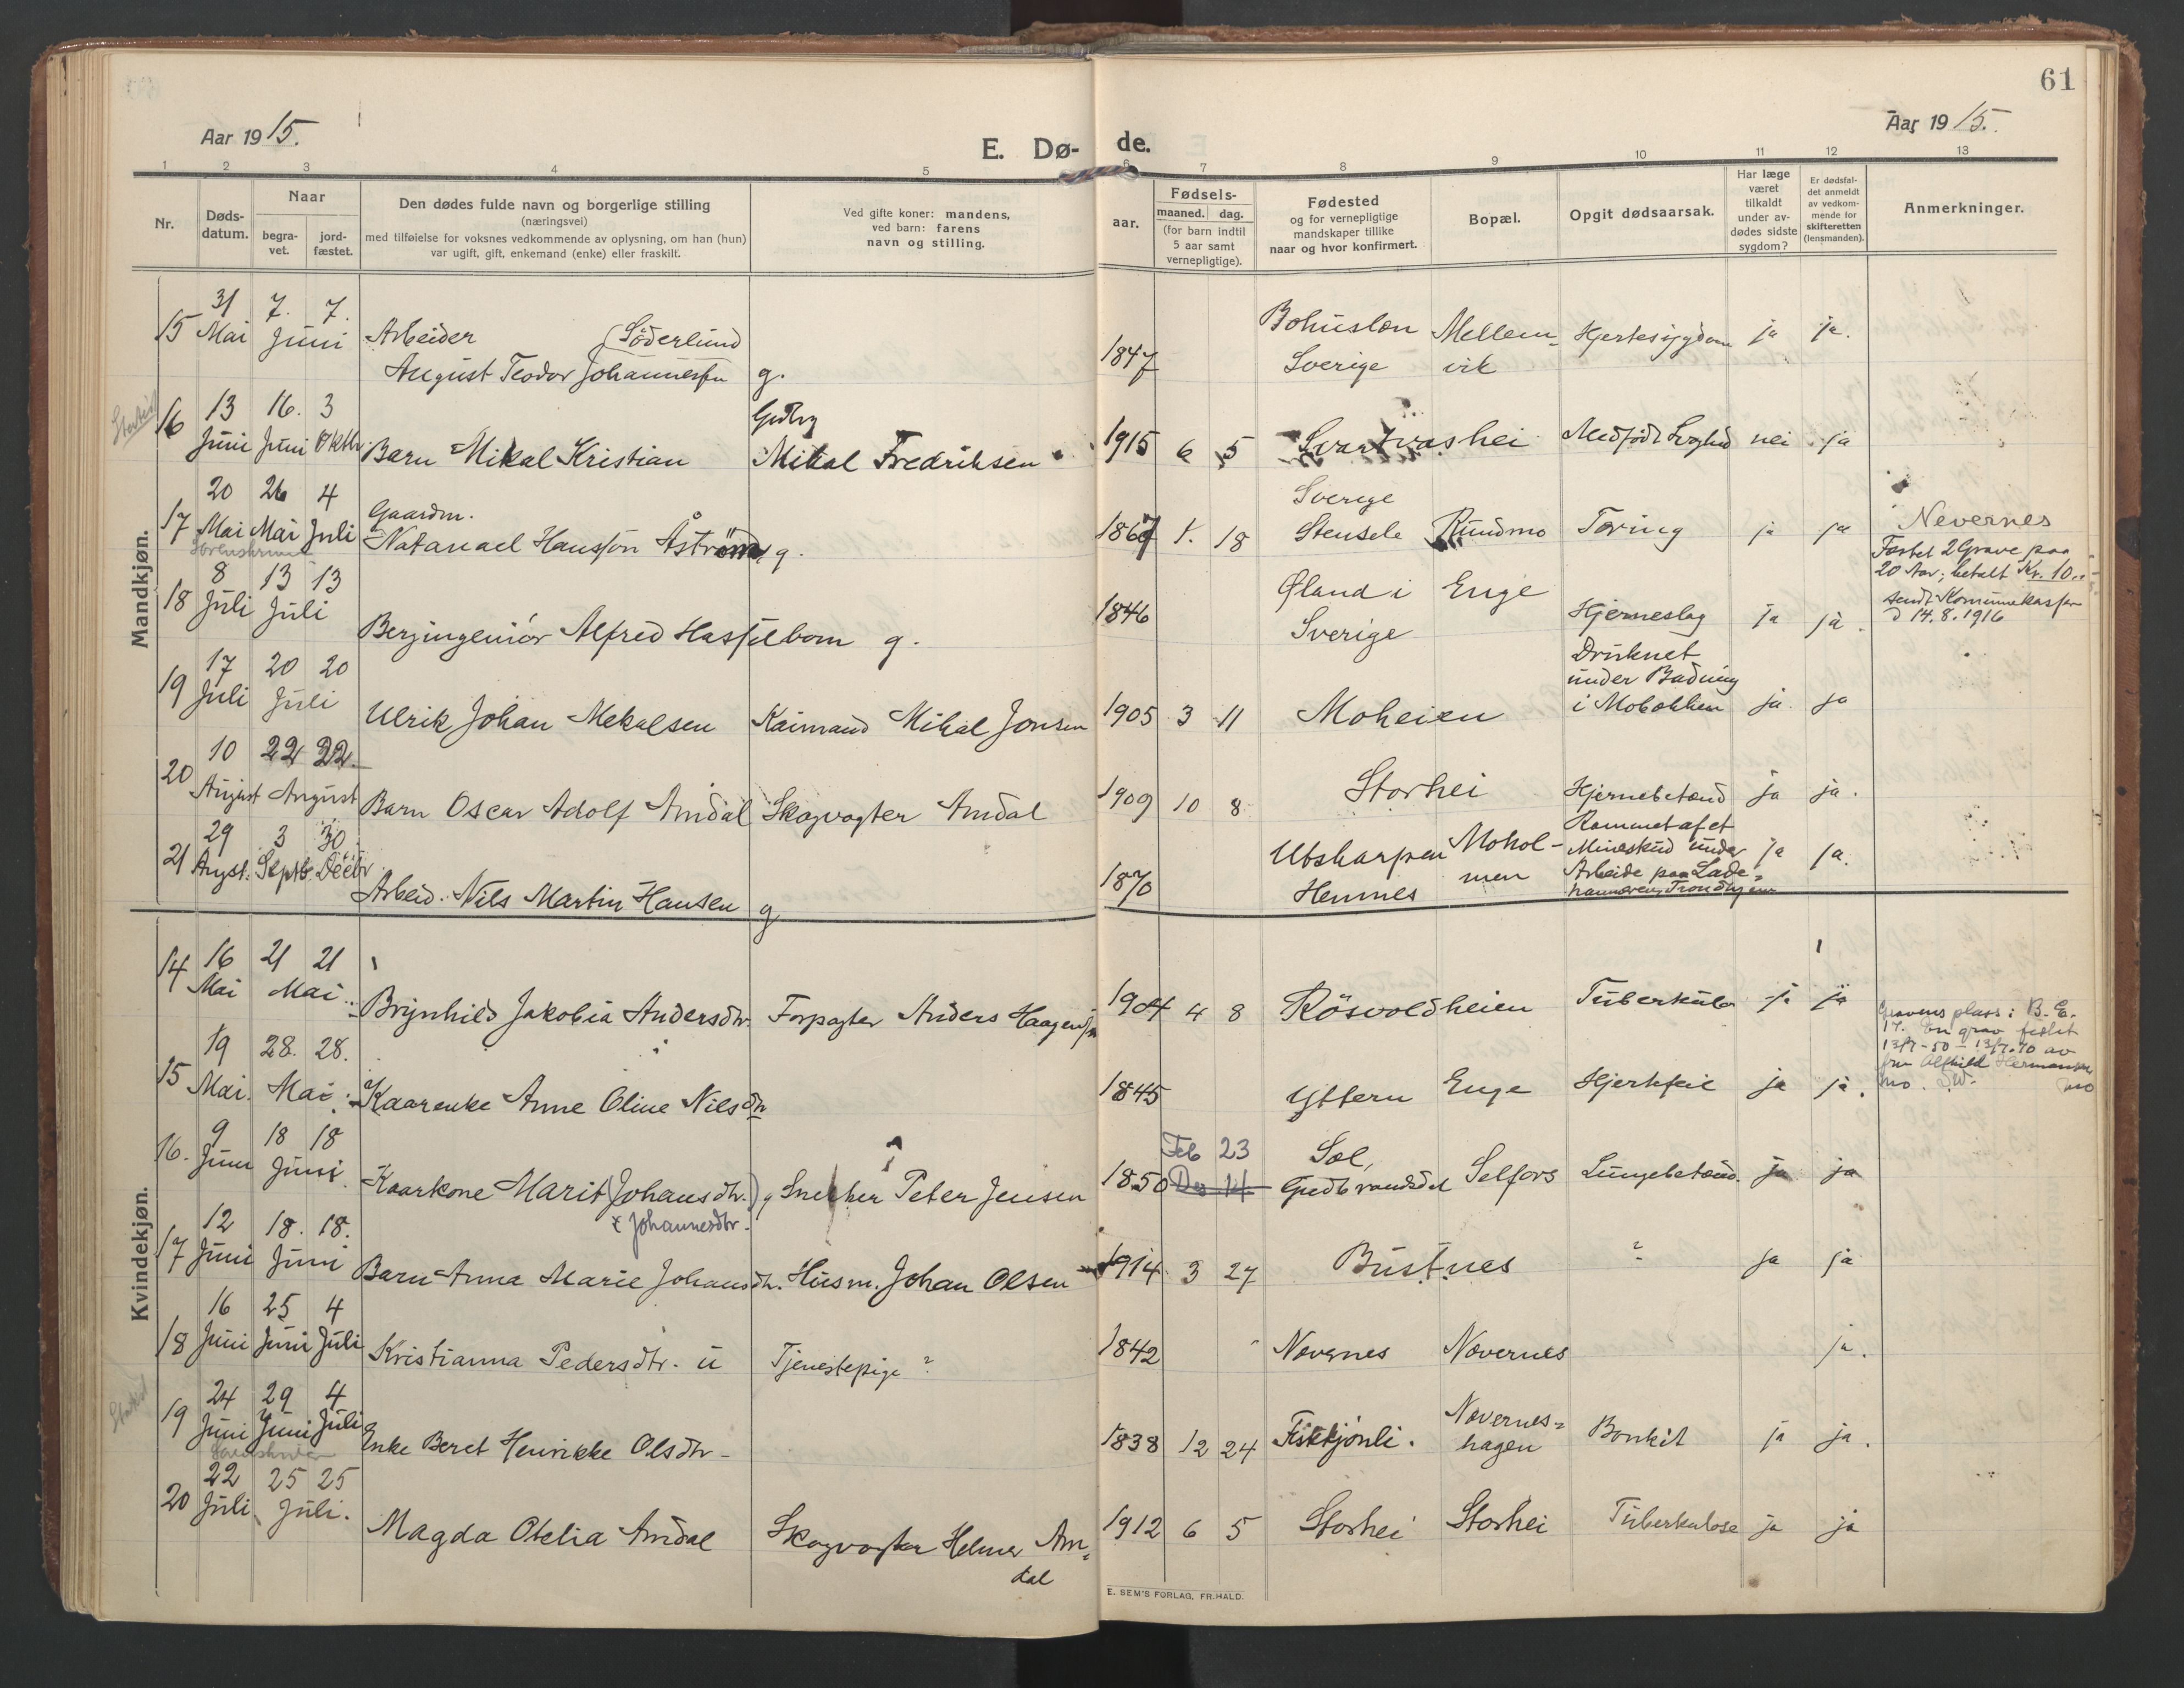 61
Aar 1915.
E. Dø- de.
Aar 1915.
1 2 3 4 5 6 7 8 9 10 11 12 13
Nr.
Døds-
datum.
Naar
begra-
vet.
jord-
fæstet.
Den dødes fulde navn og borgerlige stilling
(næringsvei)
med tilføielse for voksnes vedkommende av oplysning, om han (hun)
var ugift, gift, enkemand (enke) eller fraskilt.
Ved gifte koner: mandens,
ved barn: farens
navn og stilling.
Fødsels-
aar.
maaned. dag.
(for barn indtil
5 aar samt
vernepligtige).
Fødested
og for vernepligtige
mandskaper tillike
naar og hvor konfirmert.
Bopæl.
Opgit dødsaarsak.
Har læge
været
tilkaldt
under av-
dødes sidste
sygdom?
Er dødsfal-
det anmeldt
av vedkom-
mende for
skifteretten
(lensmanden).
Anmerkninger.
Mandkjøn.
31 7. 7.
15 Mai Juni Arbeider (Söderlund Bohuslen Mellem- Hjertesygdom ja ja.
August Teodor Johannessen g. 1847 Sverige vik
13 16. 3
16 Juni Juni Oktbr. Barn Mikal Kristian Mikal Fredriksen 1915 6 5 Svartvashei nei ja
20 26 4 Gaardm. Sverige
17 Mai Mai Juli Natanael Hansson Åström, g. 1867 1. 18 Stensele Ruudmo Tæring ja ja
Nevernes
Fæstet 2 Grave paa
20 Aar; betalt Kr. 10..
sendt Kommunekassen
d 14.8.1916
8 13 13
18 Juli Juli Berjingeniør Alfred Hasselbom g. 1846 Øland i Enge
Sverige Hjerneslag ja ja.
17 20 20 Druknet
19 Juli Juli under Badning
Ulrik Johan Mekalsen Kaimand Mikal Jonsen 1905 3 11 Moheien i Mobækken ja ja
10 22 22.
20 August August Barn Oscar Adolf Amdal Skogvogter Amdal 1909 10 8 Storhei Hjernebetænd ja ja.
29 3 30. Rammet af et
21 Augst. Septb. Decbr Utskarpen Mohol- Mineskud under ja ja.
Arbeid. Nils Martin Hansen g 1870 Hemnes men Arbeide paa Lade-
hammeren, Trondhjem
Kvindekjøn.
16 21 21
14 Mai Mai. Brynhild Jakobia Andersdtr. Forpagter Anders Haagensen 1904 4 8 Røsvoldheien Tuberkulo ja ja
Gravens plass: B.E.
17. En grav festet
13/7-50 - 13/7-70 av
fru Alfhild Hermansen
Mo.
19 28. 28.
15 Mai. Mai. Kaarenke Anne Oline Nilsdtr 1845 Yttern Enge Hjertefeil ja ja.
9 18 18 Feb 23 Sel,
16. Juni Juni. Kaarkone Marit (Johansdtr.) g Snekker Peter Jensen 1850 Des 14 Gudbrandsdal Selfors Lungebetænd. ja ja
Johannesdtr.
12 18. 18.
17 Juni Juni Barn Anna Marie Johansdtr. Husm. Johan Olsen 1914 3 27 Bustnes ? ja ja
16 25 4
18 Juni Juni Juli Kristianna Pedersdtr. u Tjenestepige ? 1842 Nevernes Nevernes ja.
24 29 4
19 Juni Juni Juli Enke Beret Henrikke Olsdtr 1838 12 24 Fisktjønli. Nevernes- Bronkit ja ja.
hagen
22 25 25
20 Juli Juli. Magda Otelia Amdal Skogvogter Helmer Am- 1912 6 5 Storhei Storhei Tuberkulose ja ja
dal
E. SEM'S FORLAG, FR.HALD.